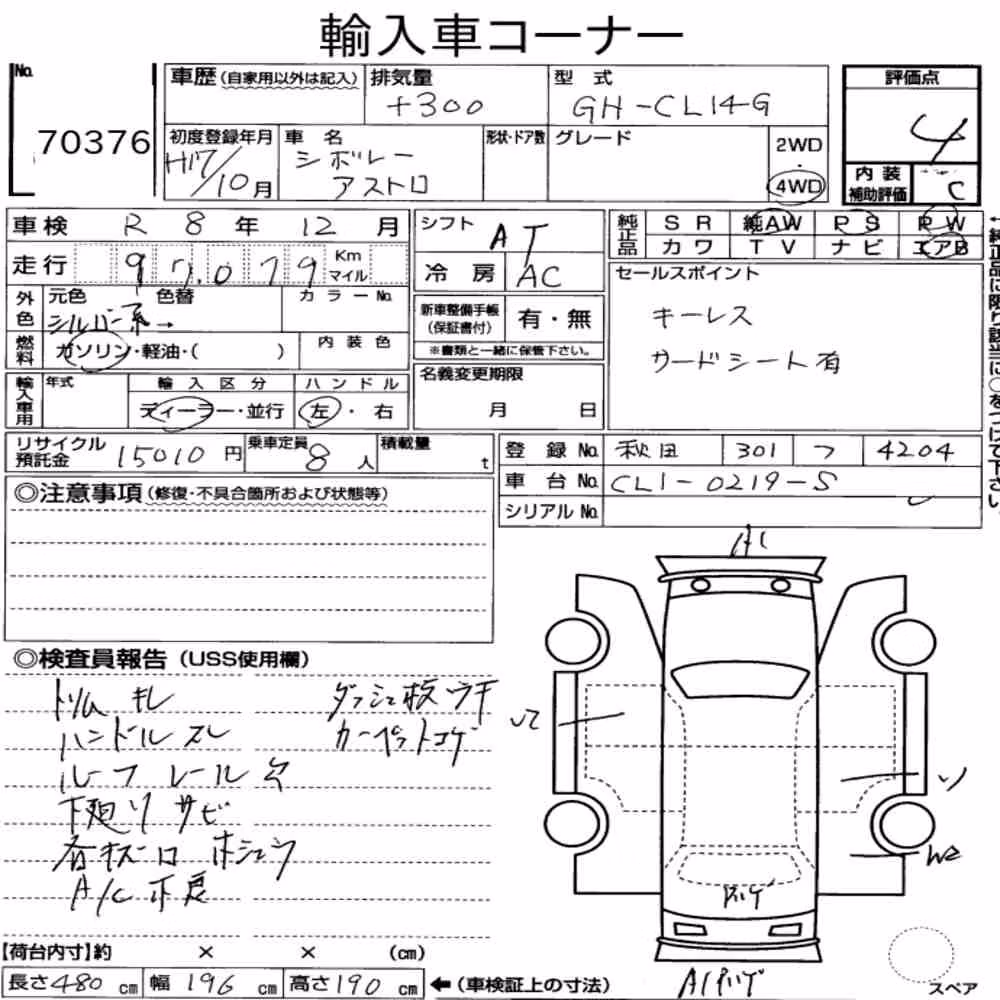 輸入車コーナー
No.
70376
車歴(自家用以外は記入)
排気量
4300
型式
GH-CL14G
評価点
4
初度登録年月
H17/10月
車名
シボレー
アストロ
形状・ドア数
グレード
2WD
・
4WD
内装
補助評価
C
車検 R 8 年 12 月
走行 97,079 Km マイル
外色
元色 色替
シルバー系→
カラーNo.
燃料
ガソリン・軽油・( )
内装色
輸入車用
年式
輸入区分
ディーラー・並行
ハンドル
左・右
シフト
AT
冷房
AC
新車整備手帳
(保証書付)
有・無
※書類と一緒に保管下さい。
名義変更期限
月 日
純正品
SR 純AW PS PW
カワ TV ナビ エアB
←純正品に限り該当に○をつけて下さい。
セールスポイント
キーレス
サードシート有
リサイクル
預託金
15010円
乗車定員
8人
積載量
t
登録No. 秋田 301 フ 4204
車台No. CL1-0219-S
シリアルNo.
◎注意事項(修復・不具合箇所および状態等)
◎検査員報告(USS使用欄)
トリム キレ
ハンドル スレ
ルーフ レール欠
下廻り サビ
A/C 不良
カーペットコゲ
A1
W2
スペア
【荷台内寸】約 × × (cm)
長さ480cm 幅196cm 高さ190cm ←(車検証上の寸法)